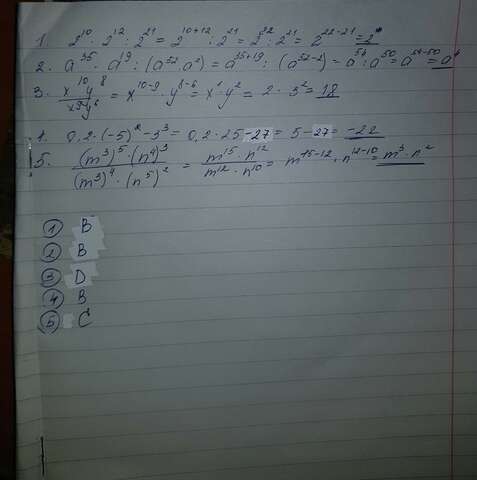 1. 2¹⁰ · 2¹² : 2²¹ = 2¹⁰⁺¹² : 2²¹ = 2²² : 2²¹ = 2²²⁻²¹ = 2¹
2. a³⁵ · a¹⁹ : (a⁵² · a²) = a³⁵⁺¹⁹ : (a⁵²⁻²) = a⁵⁴ : a⁵⁰ = a⁵⁴⁻⁵⁰ = a⁴
3. x¹⁰ y⁸ / x⁹ y⁶ = x¹⁰⁻⁹ · y⁸⁻⁶ = x¹ · y² = 2 · 3² = 18
1. 0,2 · (-5)² - 3³ = 0,2 · 25 - 27 = 5 - 27 = -22
5. (m³)⁵ · (n⁴)³ / (m³)⁴ · (n⁵)² = m¹⁵ · n¹² / m¹² · n¹⁰ = m¹⁵⁻¹² · n¹²⁻¹⁰ = m³ · n²
① B
② B
③ D
④ B
⑤ C